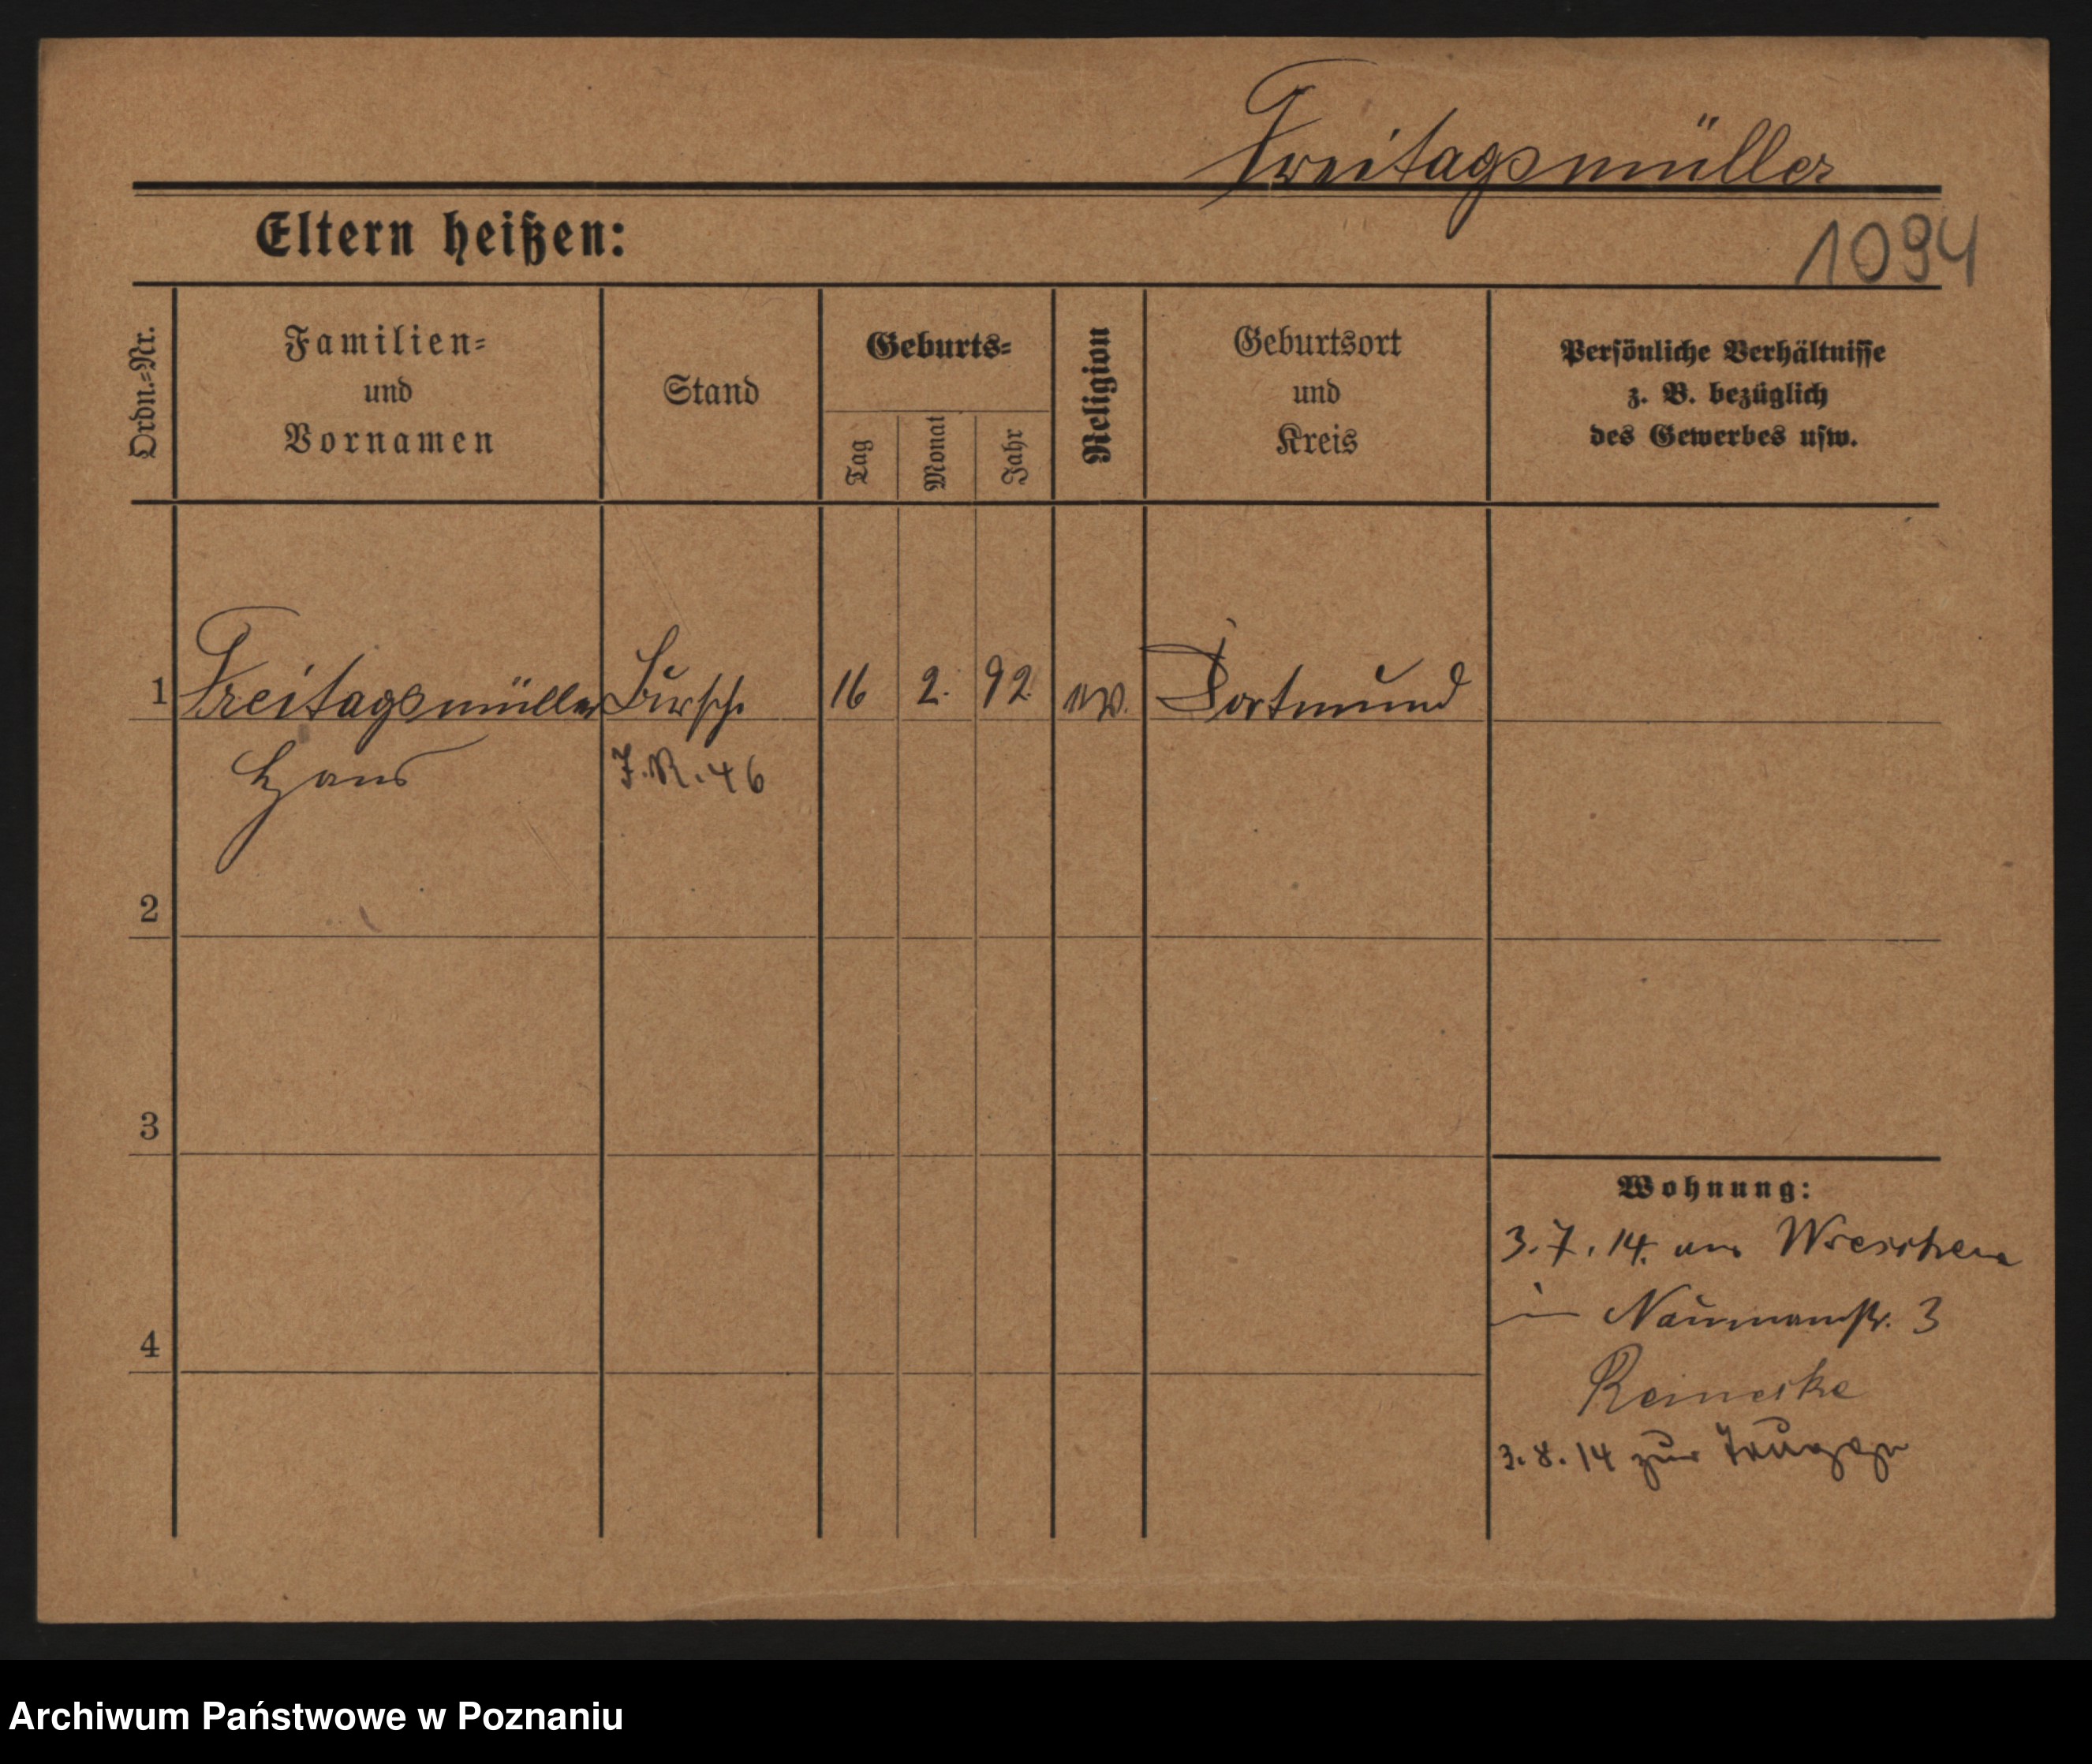 Freitagsmüller
Eltern heißen:
1094
Ordn.=Nr.
Familien=
und
Vornamen
Stand
Geburts=
Tag
Monat
Jahr
Religion
Geburtsort
und
Kreis
Persönliche Verhältnisse
z. B. bezüglich
des Gewerbes usw.
1 Freitagsmüller Bursche 16 2. 92. ev. Dortmund
Hans J.R. 46
2
3
4
Wohnung:
3.7.14. aus Wreschen
in Naumannstr. 3
Reinecke
3.8.14 zur
Archiwum Państwowe w Poznaniu